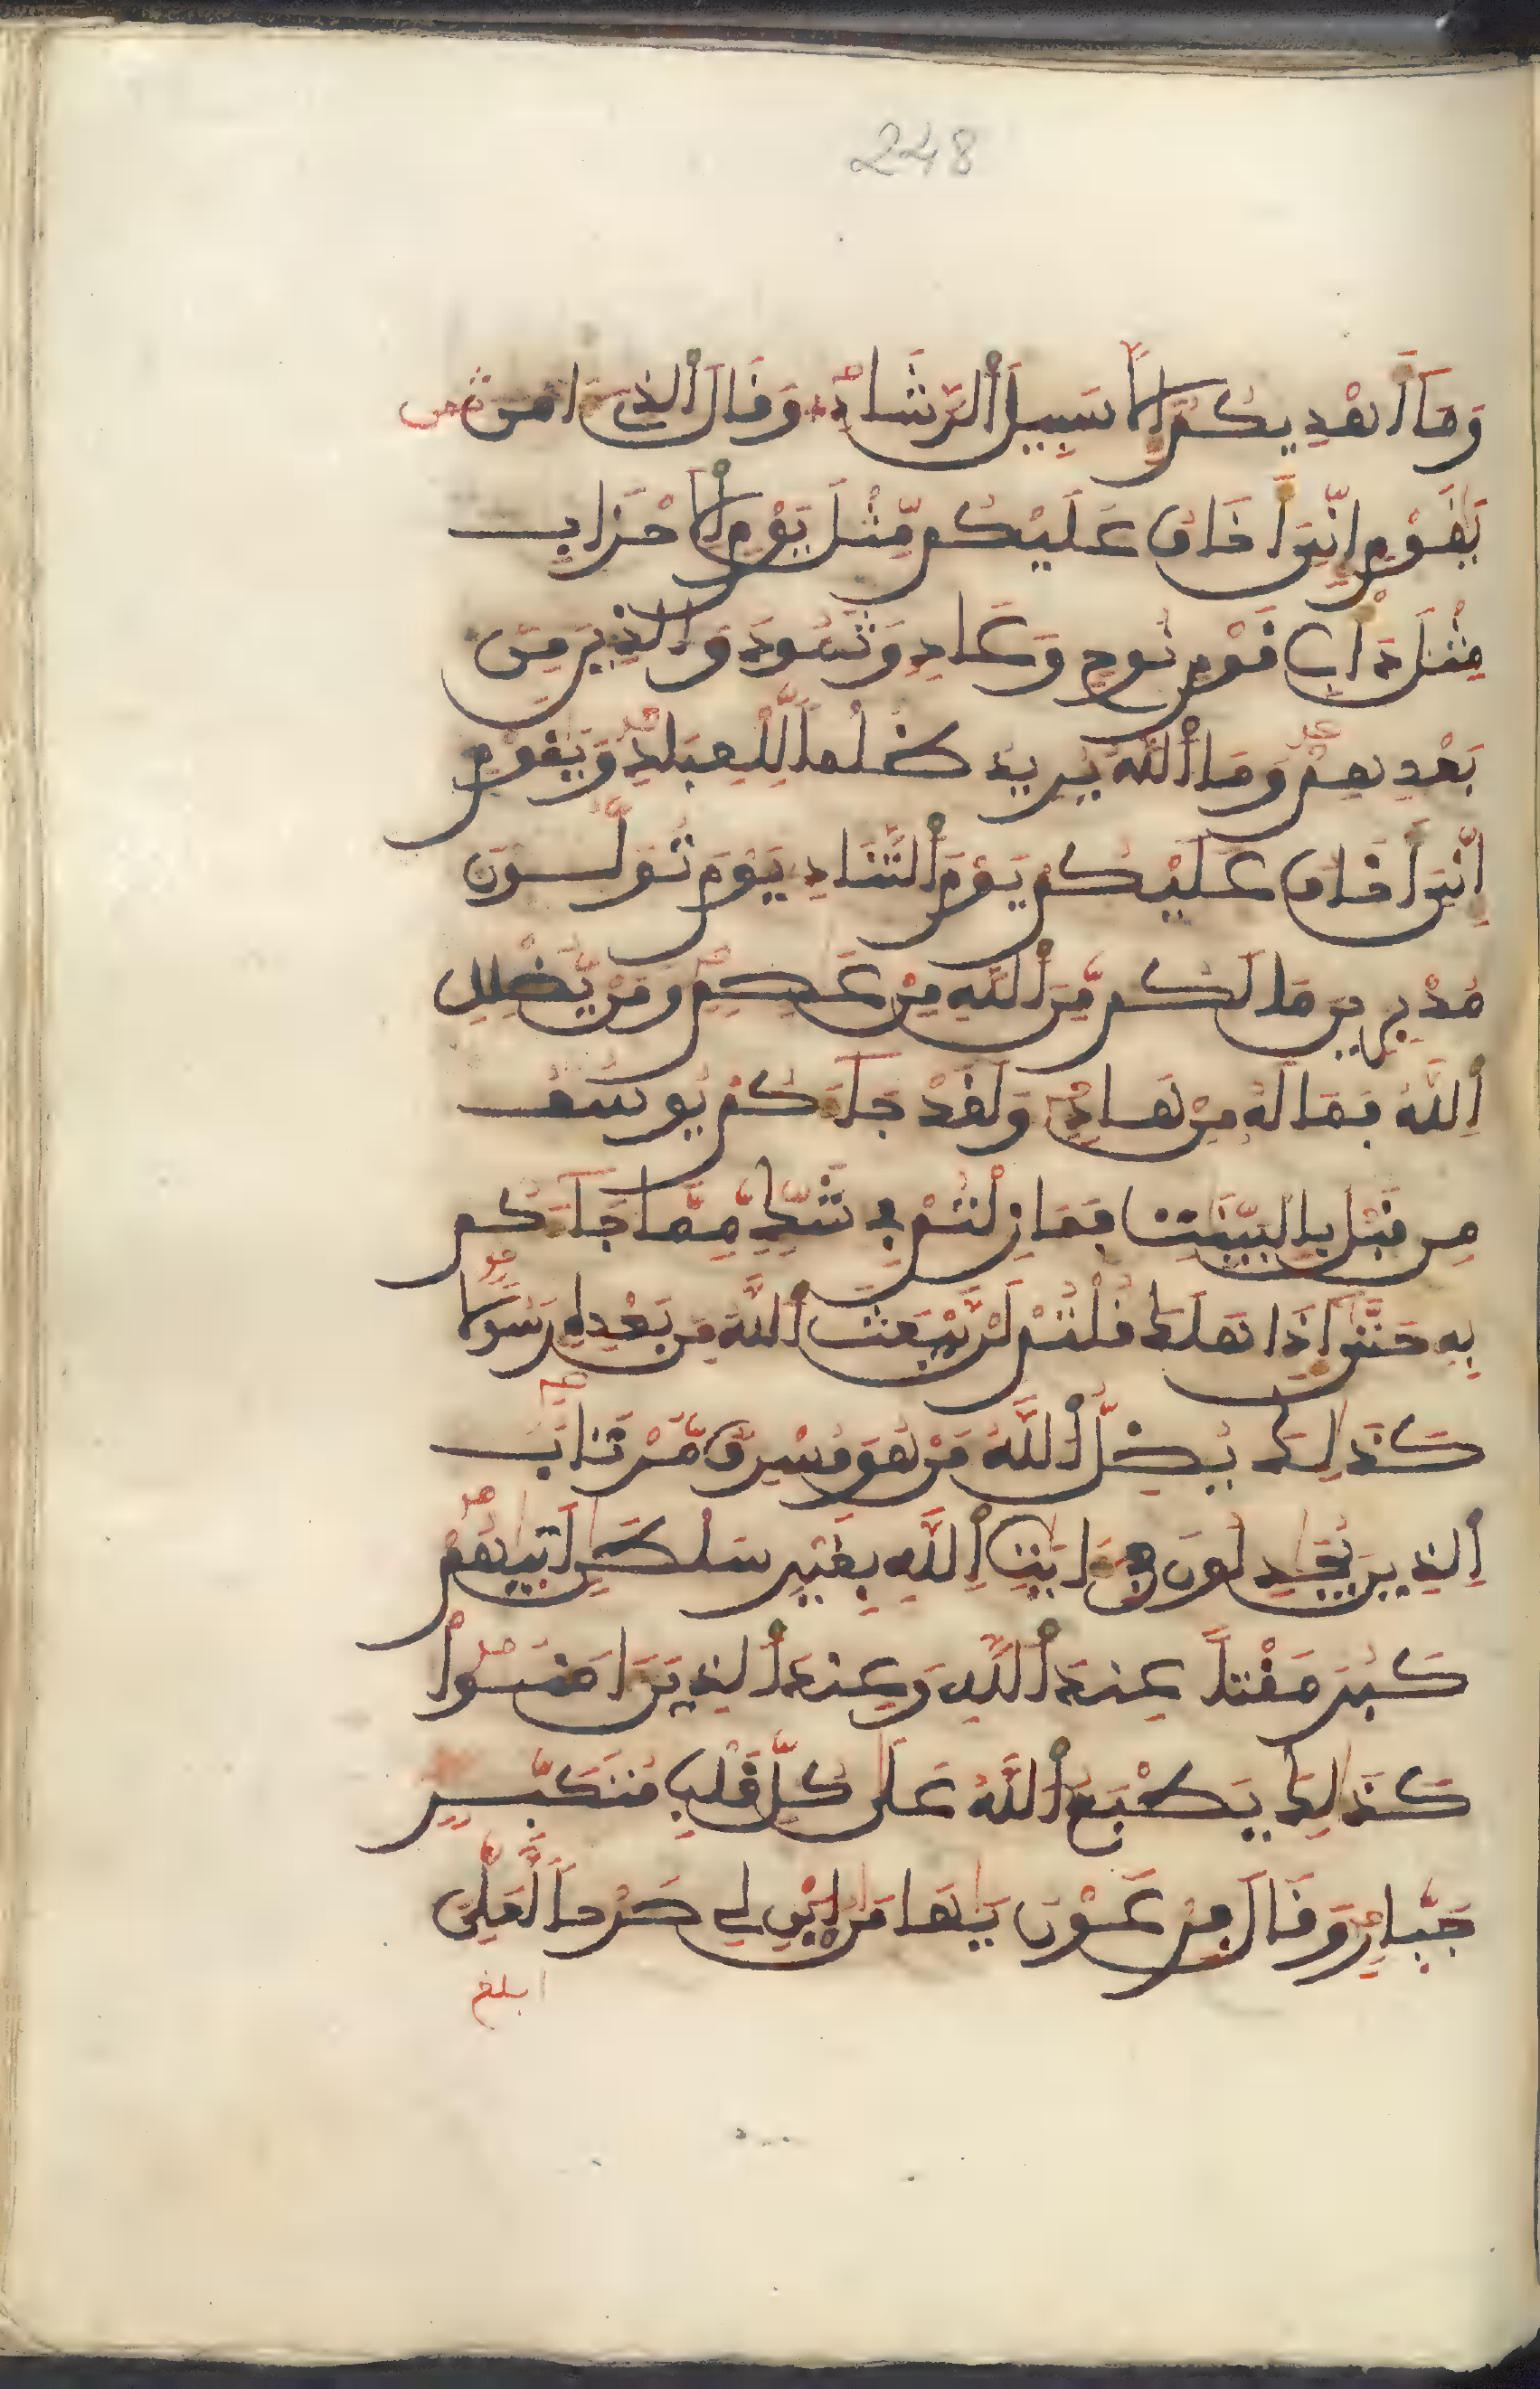 248
وَمَآ أَهْدِيكُمُۥ إِلَّا سَبِيلَ اَ۬لرَّشَادِ وَقَالَ اَ۬لذِےٓ ءَامَنَ
يَٰقَوْمِ إِنِّيَ أَخَافُ عَلَيْكُم مِّثْلَ يَوْمِ اِ۬لَاحْزَابِ
مِثْلَ دَأْبِ قَوْمِ نُوحٍ وَعَادٍ وَثَمُودَ وَالذِينَ مِنۢ
بَعْدِهِمْ وَمَا اَ۬للَّهُ يُرِيدُ ظُلْماً لِّلْعِبَادِ وَيَٰقَوْمِ
إِنِّيَ أَخَافُ عَلَيْكُمْ يَوْمَ اَ۬لتَّنَادِ يَوْمَ تُوَلُّونَ
مُدْبِرِينَ مَا لَكُم مِّنَ اَ۬للَّهِ مِنْ عَٰصِمٍ وَمَنْ يُّضْلِلِ
اِ۬للَّهُ فَمَا لَهُۥ مِنْ هَادٍ وَلَقَدْ جَآءَكُمْ يُوسُفُ
مِن قَبْلُ بِالْبَيِّنَٰتِ فَمَا زِلْتُمْ فِے شَكٍّ مِّمَّا جَآءَكُم
بِهِۦ حَتَّىٰٓ إِذَا هَلَكَ قُلْتُمْ لَنْ يَّبْعَثَ اَ۬للَّهُ مِنۢ بَعْدِهِۦ رَسُولاً
كَذَٰلِكَ يُضِلُّ اُ۬للَّهُ مَنْ هُوَ مُسْرِفٌ مُّرْتَابٌ
اِ۬لذِينَ يُجَٰدِلُونَ فِےٓ ءَايَٰتِ اِ۬للَّهِ بِغَيْرِ سُلْطَٰنٍ أَتَىٰهُمْ
كَبُرَ مَقْتاً عِندَ اَ۬للَّهِ وَعِندَ اَ۬لذِينَ ءَامَنُواْ
كَذَٰلِكَ يَطْبَعُ اُ۬للَّهُ عَلَىٰ كُلِّ قَلْبِ مُتَكَبِّرٍ
جَبَّارٍ وَقَالَ فِرْعَوْنُ يَٰهَٰمَٰنُ اُ۪بْنِ لِے صَرْحاً لَّعَلِّيَ
ابلغ